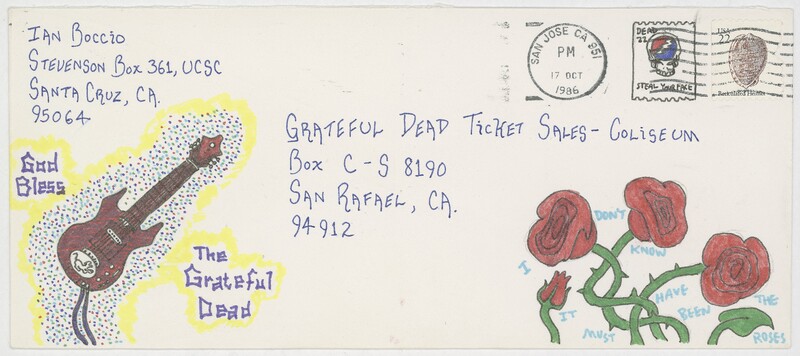 Ian Boccio
Stevenson Box 361, UCSC
Santa Cruz, CA.
95064
SAN JOSE CA 951
PM
17 OCT
1986
DEAD
22
STEAL YOUR FACE
USA
22
Grateful Dead Ticket Sales - Coliseum
Box C-S 8190
San Rafael, CA.
94912
God
Bless
The
Grateful
Dead
I DON'T KNOW
IT MUST HAVE BEEN THE ROSES